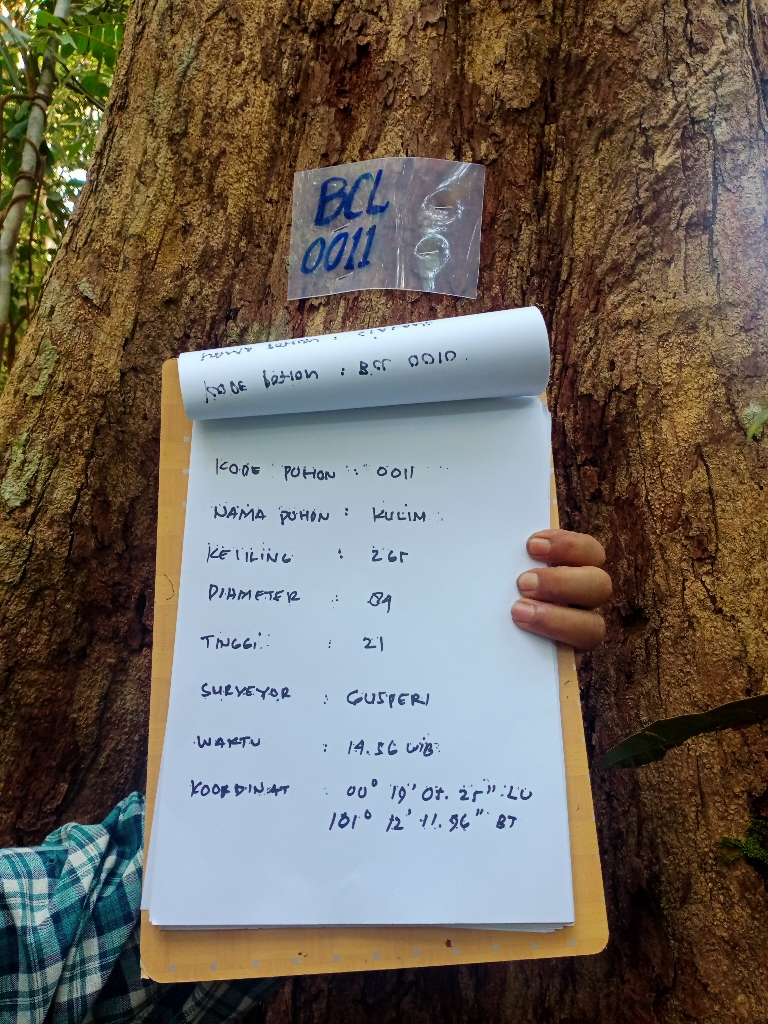 BCL
0011
KODE POHON : BCL 0010.
KODE POHON : 0011
NAMA POHON : KULIM
KELILING : 265
DIAMETER : 84
TINGGI : 21
SURVEYOR : GUSPERI
WAKTU : 14.36 WIB
KOORDINAT : 00° 19' 07.25" LU
101° 12' 11.96" BT